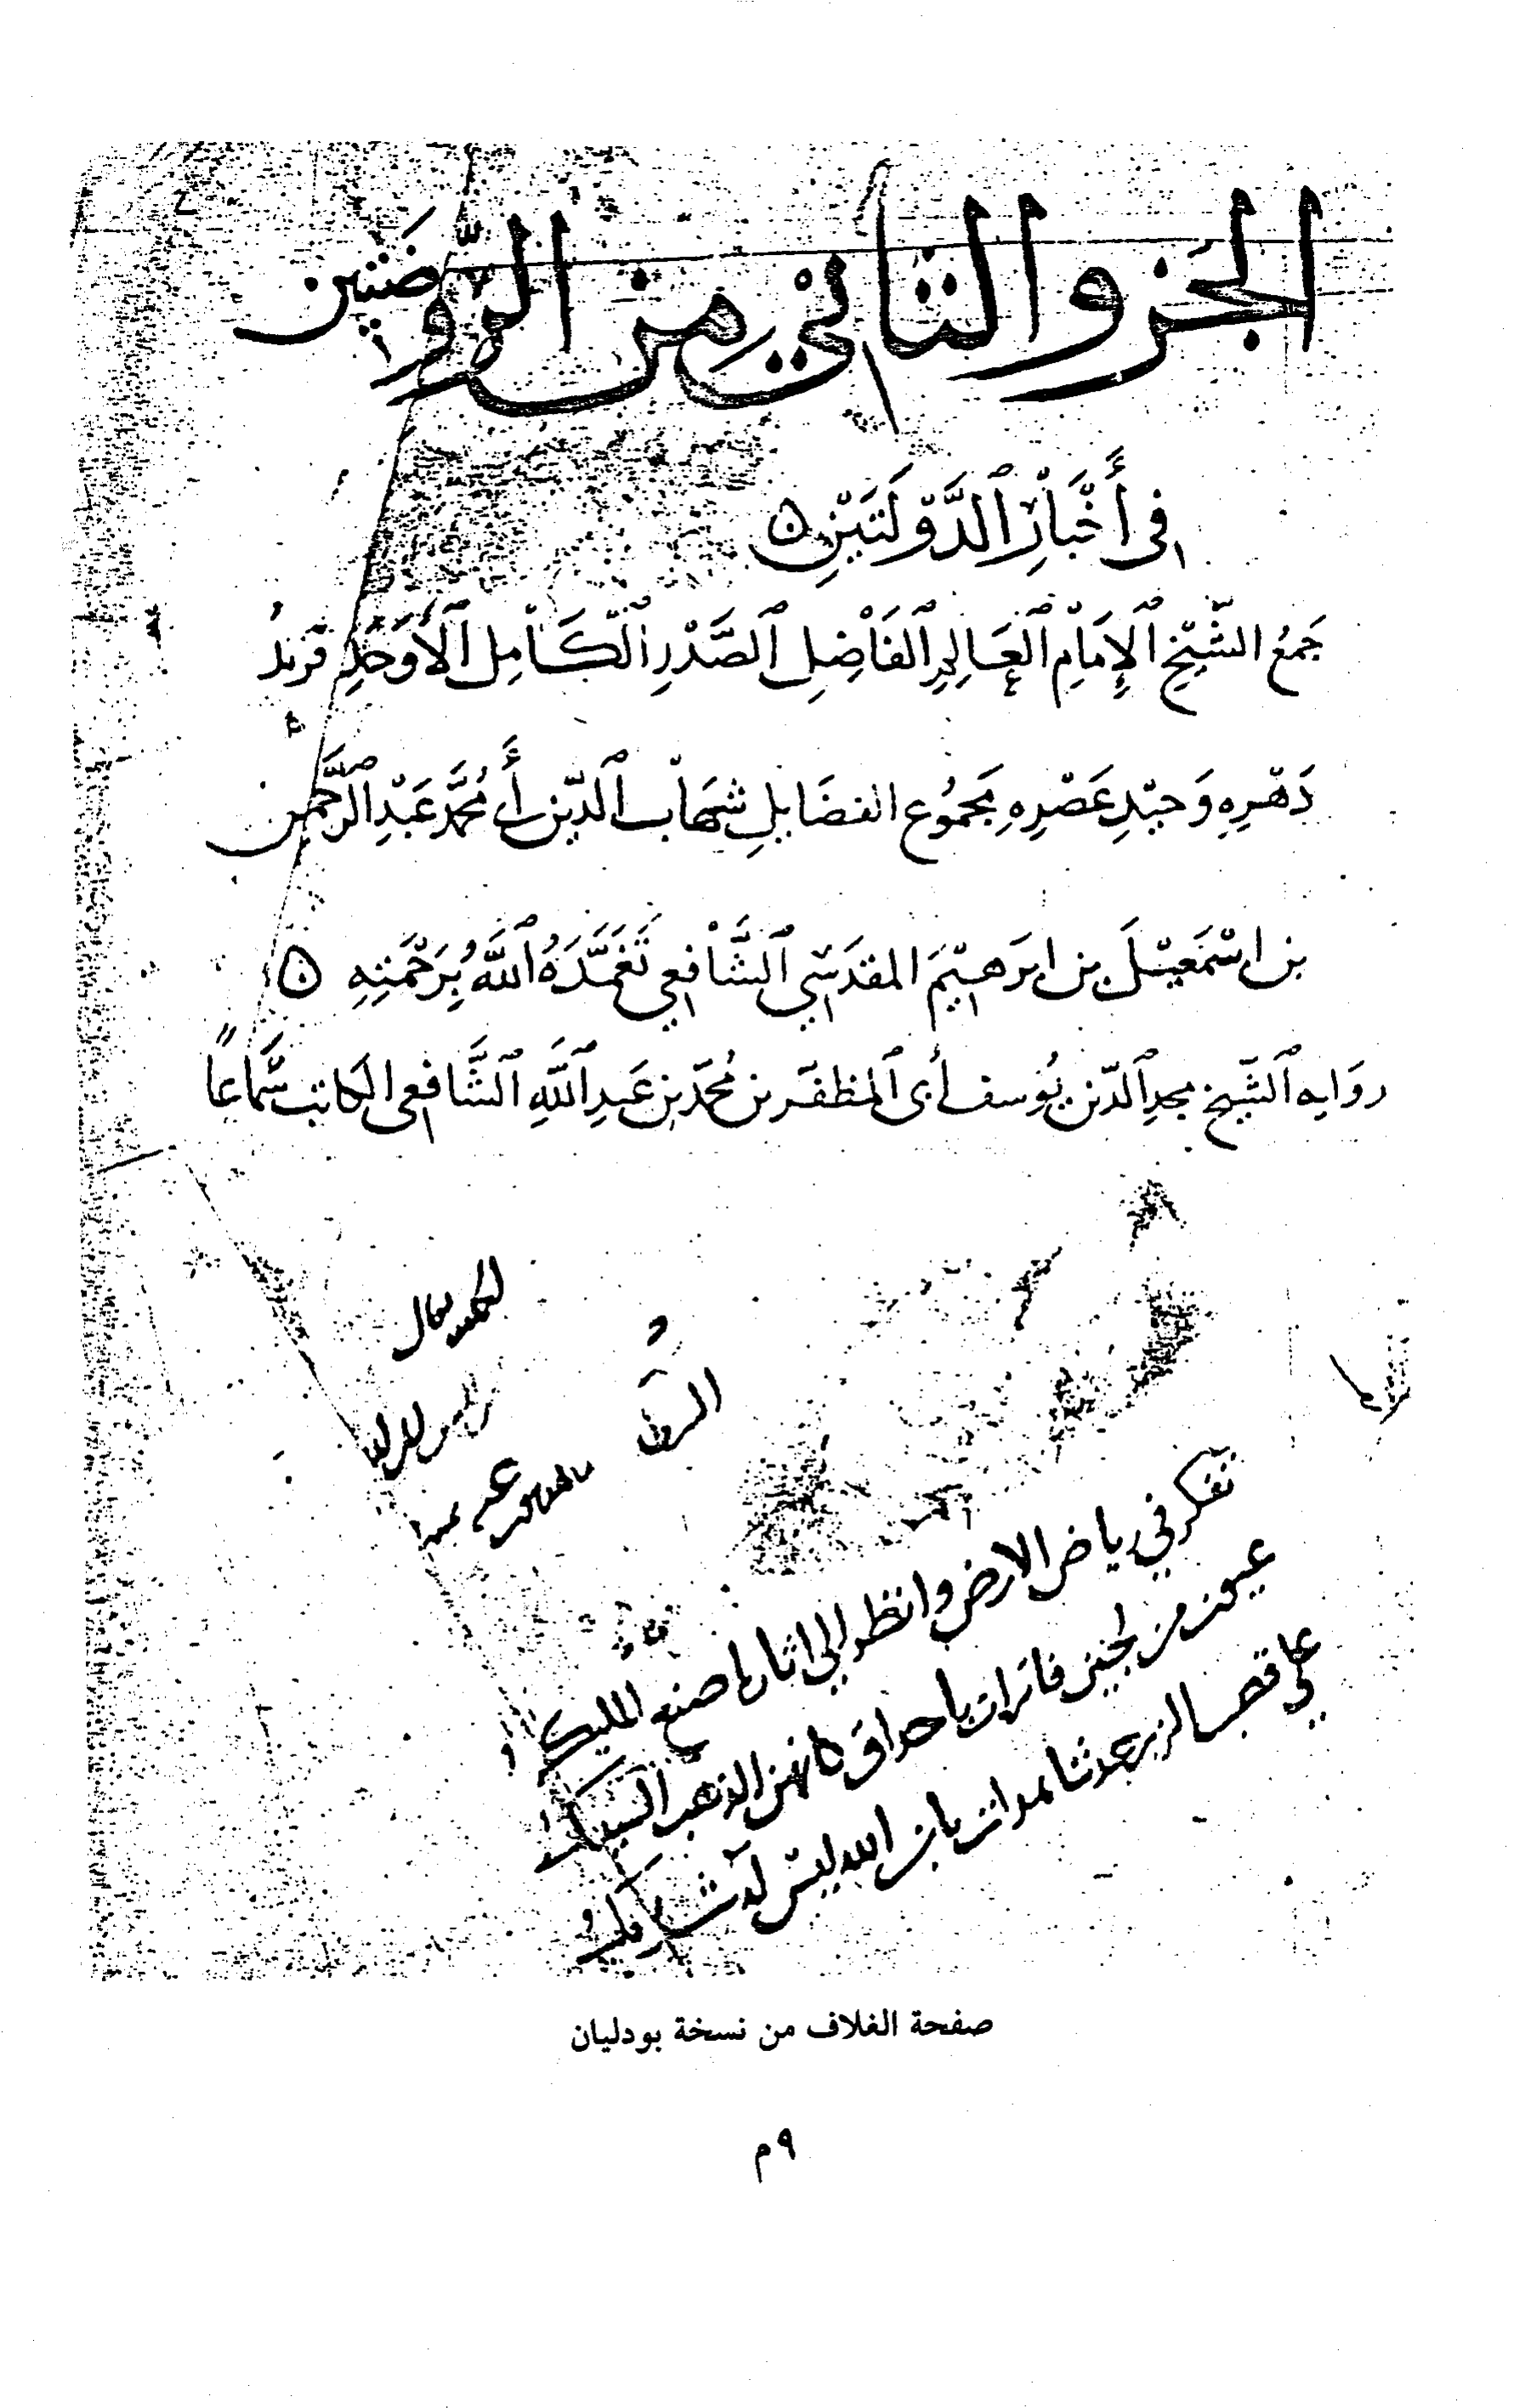 الجزو الثاني من الروضتين
في أَخْبَارِ ٱلدَّوْلَتَيْنِ ٥
جَمْعُ الشَّيْخِ ٱلإِمَامِ ٱلعَالِمِ ٱلفَاضِلِ ٱلصَّدْرِ ٱلْكَامِلِ ٱلأَوْحَدِ فَرِيدُ
دَهْرِهِ وَحِيْدِ عَصْرِهِ مَجمُوع الفضَايلِ شهَاب ٱلدّين أَبي مُحَمَّد عَبْدِ ٱلرَّحْمن
بن اسْمٰعِيْلَ بن ابرَهِيْمَ المقدَسِي ٱلشَّافعِي تَغَمَّدَهُ ٱللَّهُ بِرَحْمَتِهِ ٥
روَايه ٱلشَّيخ مجد ٱلدّين يُوسف أبى ٱلمظفّر بن مُحمَّد بن عَبدِ ٱللَّهِ ٱلشَّافعى الكاتب سَمَاعاً
تفكر في رياض الارض وانظر الي اثار ما صنع المليك
عيون من لجين فاترات باحداق كانهن الذهب السبيك
علي قصب الزبرجد شاهدات بان الله ليس له شريك
صفحة الغلاف من نسخة بودليان
٩م